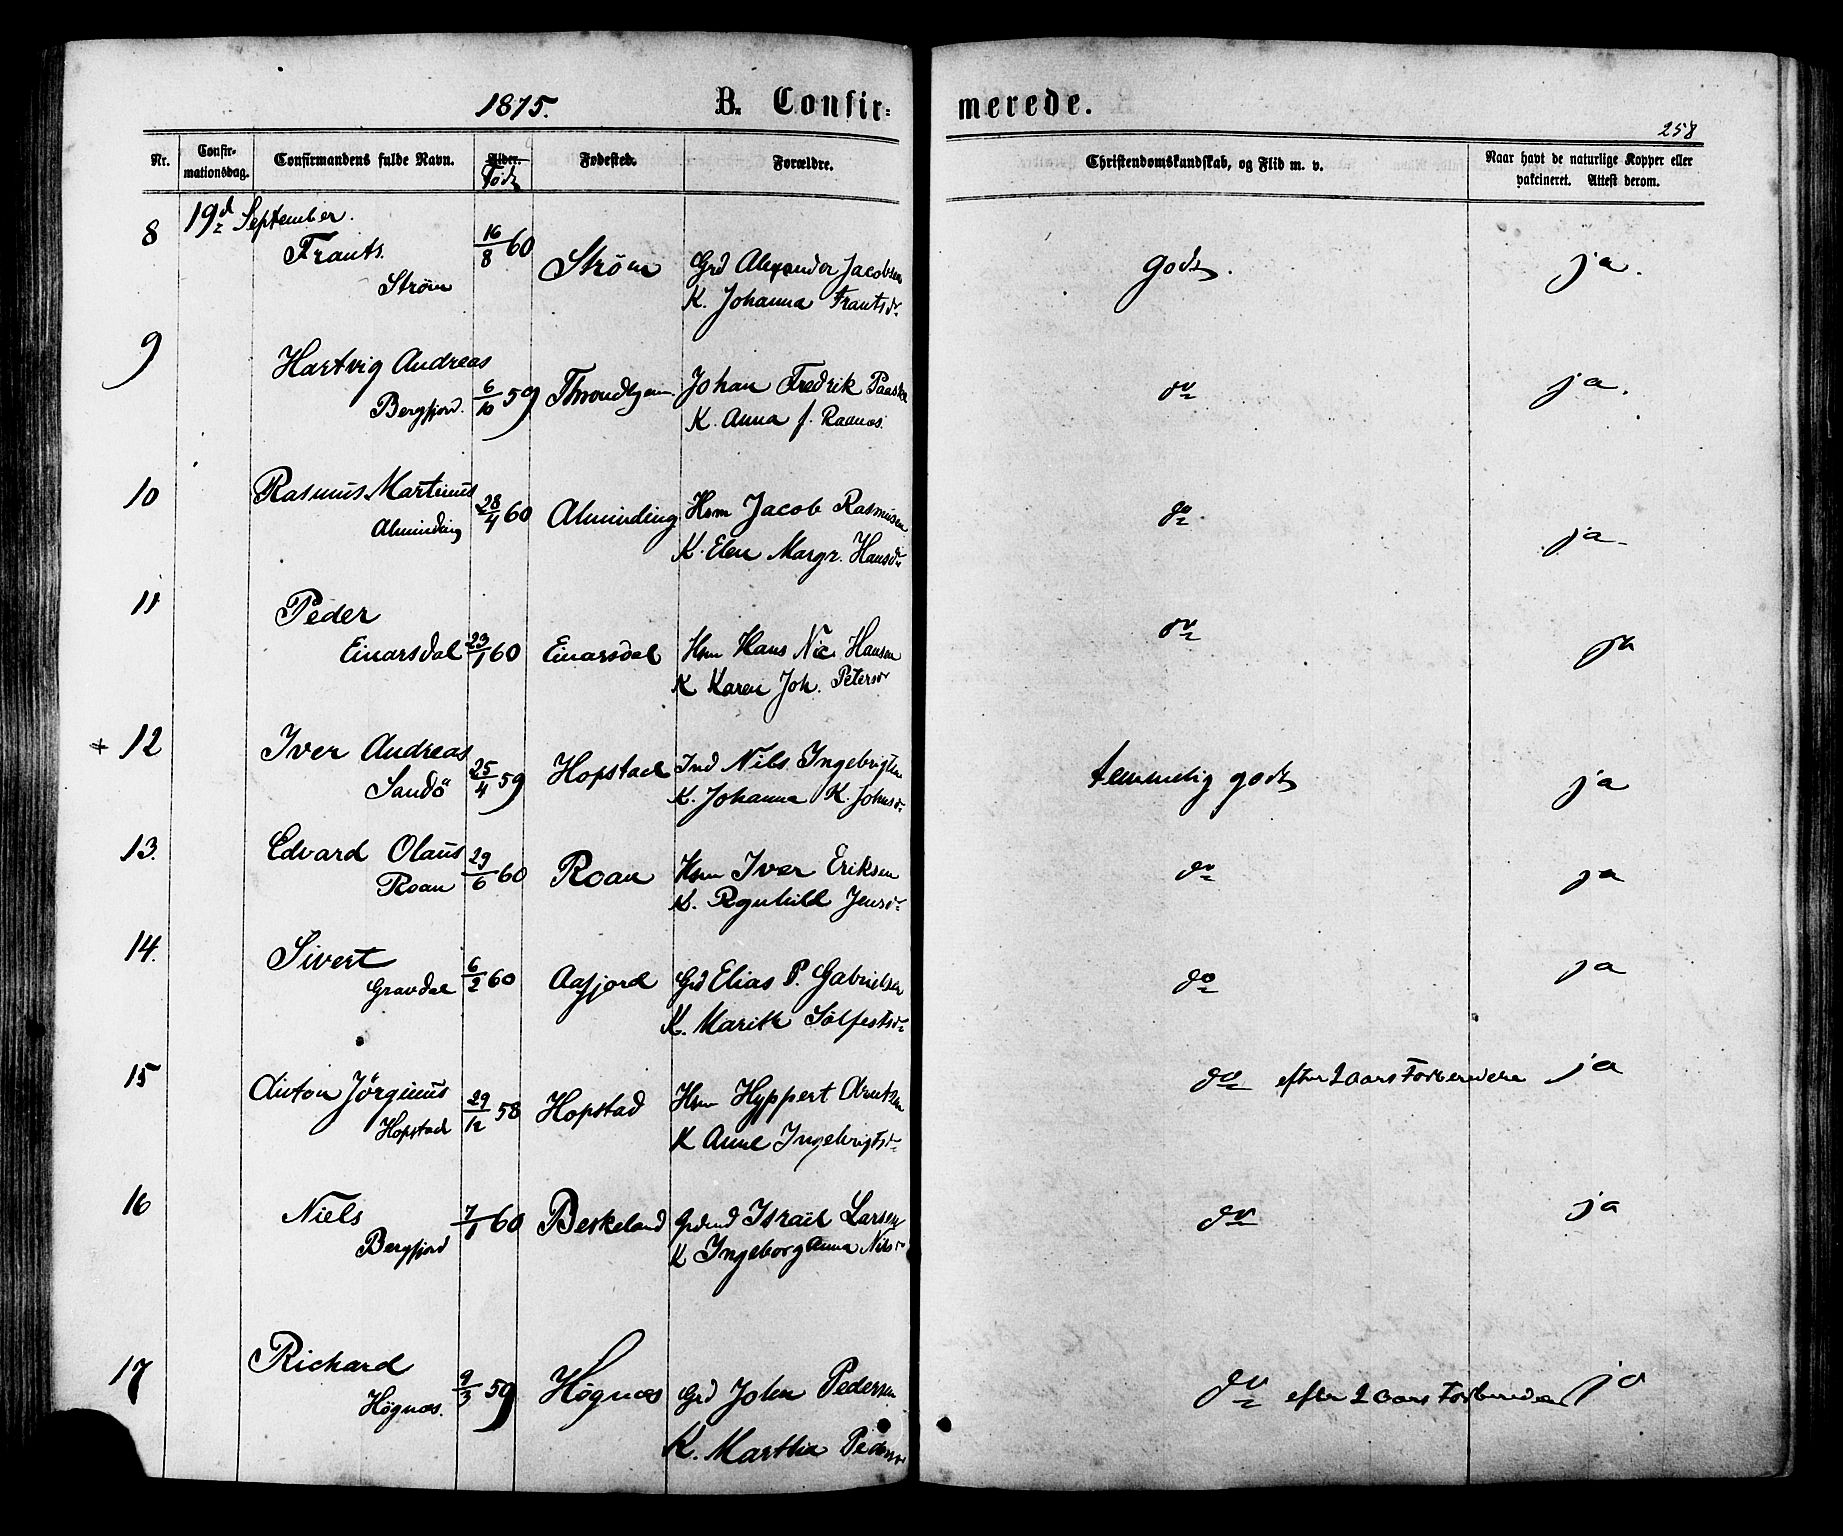 1875. B. Confir-
merede.
258
Nr. Confir-mationsdag. Confirmandens fulde Navn. Alder. Født Fødested. Forældre. Christendomskundskab, og Flid m. v. Naar havt de naturlige Kopper eller vakcineret. Attest derom.
19d September.
8 Frants 16/8 60 Strøm Grd Alexander Jacobsen godt. ja.
Strøm K. Johanna Frantsdr
9 Hartvig Andreas 6/10 59 Throndhjem Johan Fredrik Paaske do ja.
Bergfjord. K. Anna f. Raanæs.
10 Rasmus Martinus 28/4 60 Alminding Hsm Jacob Rasmusen do ja
Alminding K. Elen Margr. Hansdr
11 Peder 23/1 60 Einarsdal Hsm Hans Nic Hansen do ja
Einarsdal K Karen Joh. Petersdr
+ 12 Iver Andreas 25/4 59 Hopstad Ind Nils Ingebrigtsen temmelig godt ja
Sandö K. Johanna K. Johnsdr
13. Edvard Olaus 29/6 60 Roan Hsm Iver Eriksen do ja
Roan K. Ragnhild Jensdr
14. Sivert 6/2 60 Aafjord Grd Elias P. Gabrielsen do ja
Gravdal K. Marith Sølfestsdr
15 Anton Jørginus 29/12 58 Hopstad Hsm Hyppert Arntsen do efter 2 aars Forberedelse ja
Hopstad K Anne Ingebrigtsdr
16 Niels 7/1 60 Beskeland Israel Larsen do ja
Bergfjord K Ingeborg Anna Nilsdr
17 Richard 9/3 59 Høgnæs Grd John Pedersen do efter 2 aars Forberedelse ja
Høgnæs. K. Martha Pedersdr